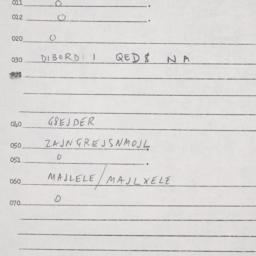 011 0 .
012 0 .
020 0
030 DIBORD: I QED$ NA
040 G8EJDER
050 ZAJNGREJSNMOJL
051 0 .
060 MAJLELE/MAJLXELE
070 0